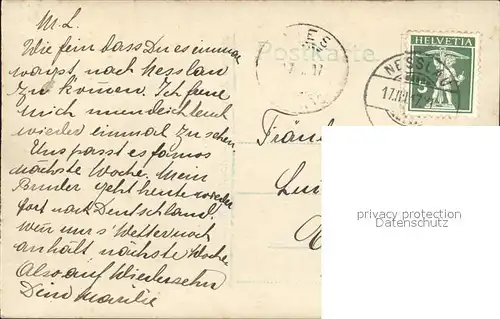 M. L.
Wie fein dass Du es einmal
wagst nach Nesslau
zu kommen. Ich freue
mich Dich
wieder einmal zu sehen.
Uns passt es famos
nächste Woche. Mein
Bruder geht heute wieder
fort nach Deutschland,
wenn nur's Wetter noch
anhält nächste Woche
Also auf Wiedersehn
Dein
Postkarte
HELVETIA
5
NESSLAU
Fräul
privacy protection
Datenschutz